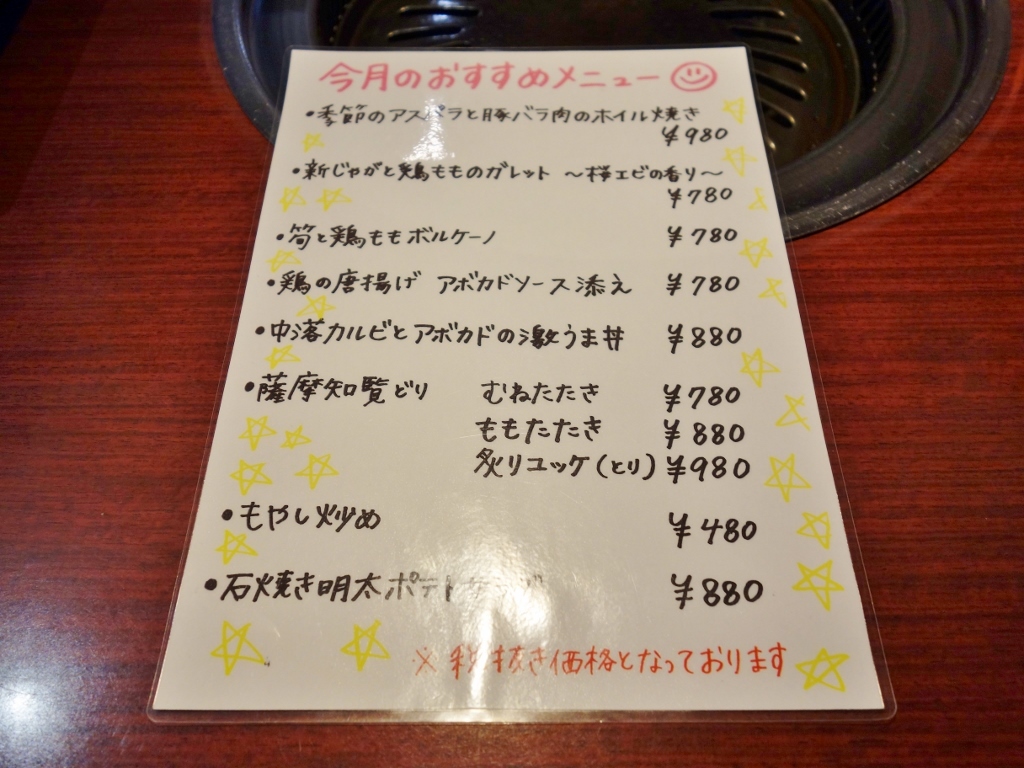 今月のおすすめメニュー
・季節のアスパラと豚バラ肉のホイル焼き
¥980
・新じゃがと鶏もものガレット 〜桜エビの香り〜
¥780
・筍と鶏ももボルケーノ ¥780
・鶏の唐揚げ アボカドソース添え ¥780
・中落カルビとアボカドの激うま丼 ¥880
・薩摩知覧どり むねたたき ¥780
ももたたき ¥880
炙りユッケ(とり) ¥980
・もやし炒め ¥480
・石焼き明太ポテト ¥880
※税抜き価格となっております